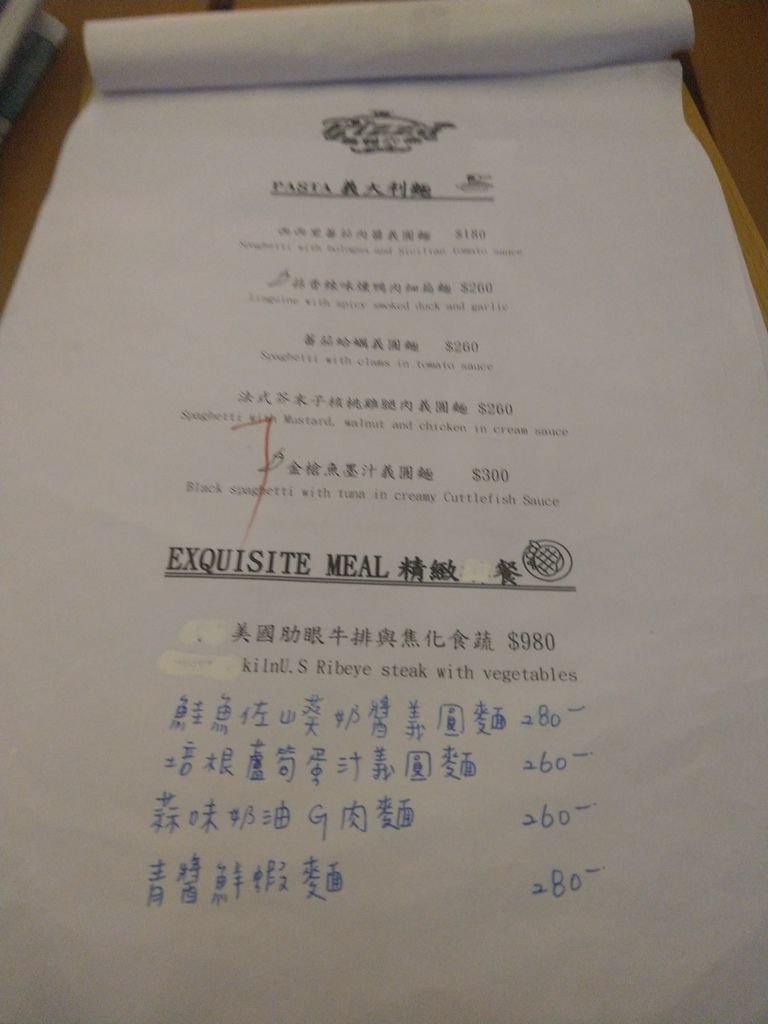 Pizza
PASTA 義大利麵
西西里蕃茄肉醬義圓麵 $180
Spaghetti with bologna and Sicilian tomato sauce
蒜香辣味燻鴨肉細扁麵 $260
Linguine with spicy smoked duck and garlic
蕃茄蛤蠣義圓麵 $260
Spaghetti with clams in tomato sauce
法式芥末子核桃雞腿肉義圓麵 $260
Spaghetti with Mustard, walnut and chicken in cream sauce
金槍魚墨汁義圓麵 $300
Black spaghetti with tuna in creamy Cuttlefish Sauce
EXQUISITE MEAL 精緻 餐
美國肋眼牛排與焦化食蔬 $980
kilnU.S Ribeye steak with vegetables
鮭魚佐山葵奶醬義圓麵 280-
培根蘆筍蛋汁義圓麵 260-
蒜味奶油G肉麵 260-
青醬鮮蝦麵 280-